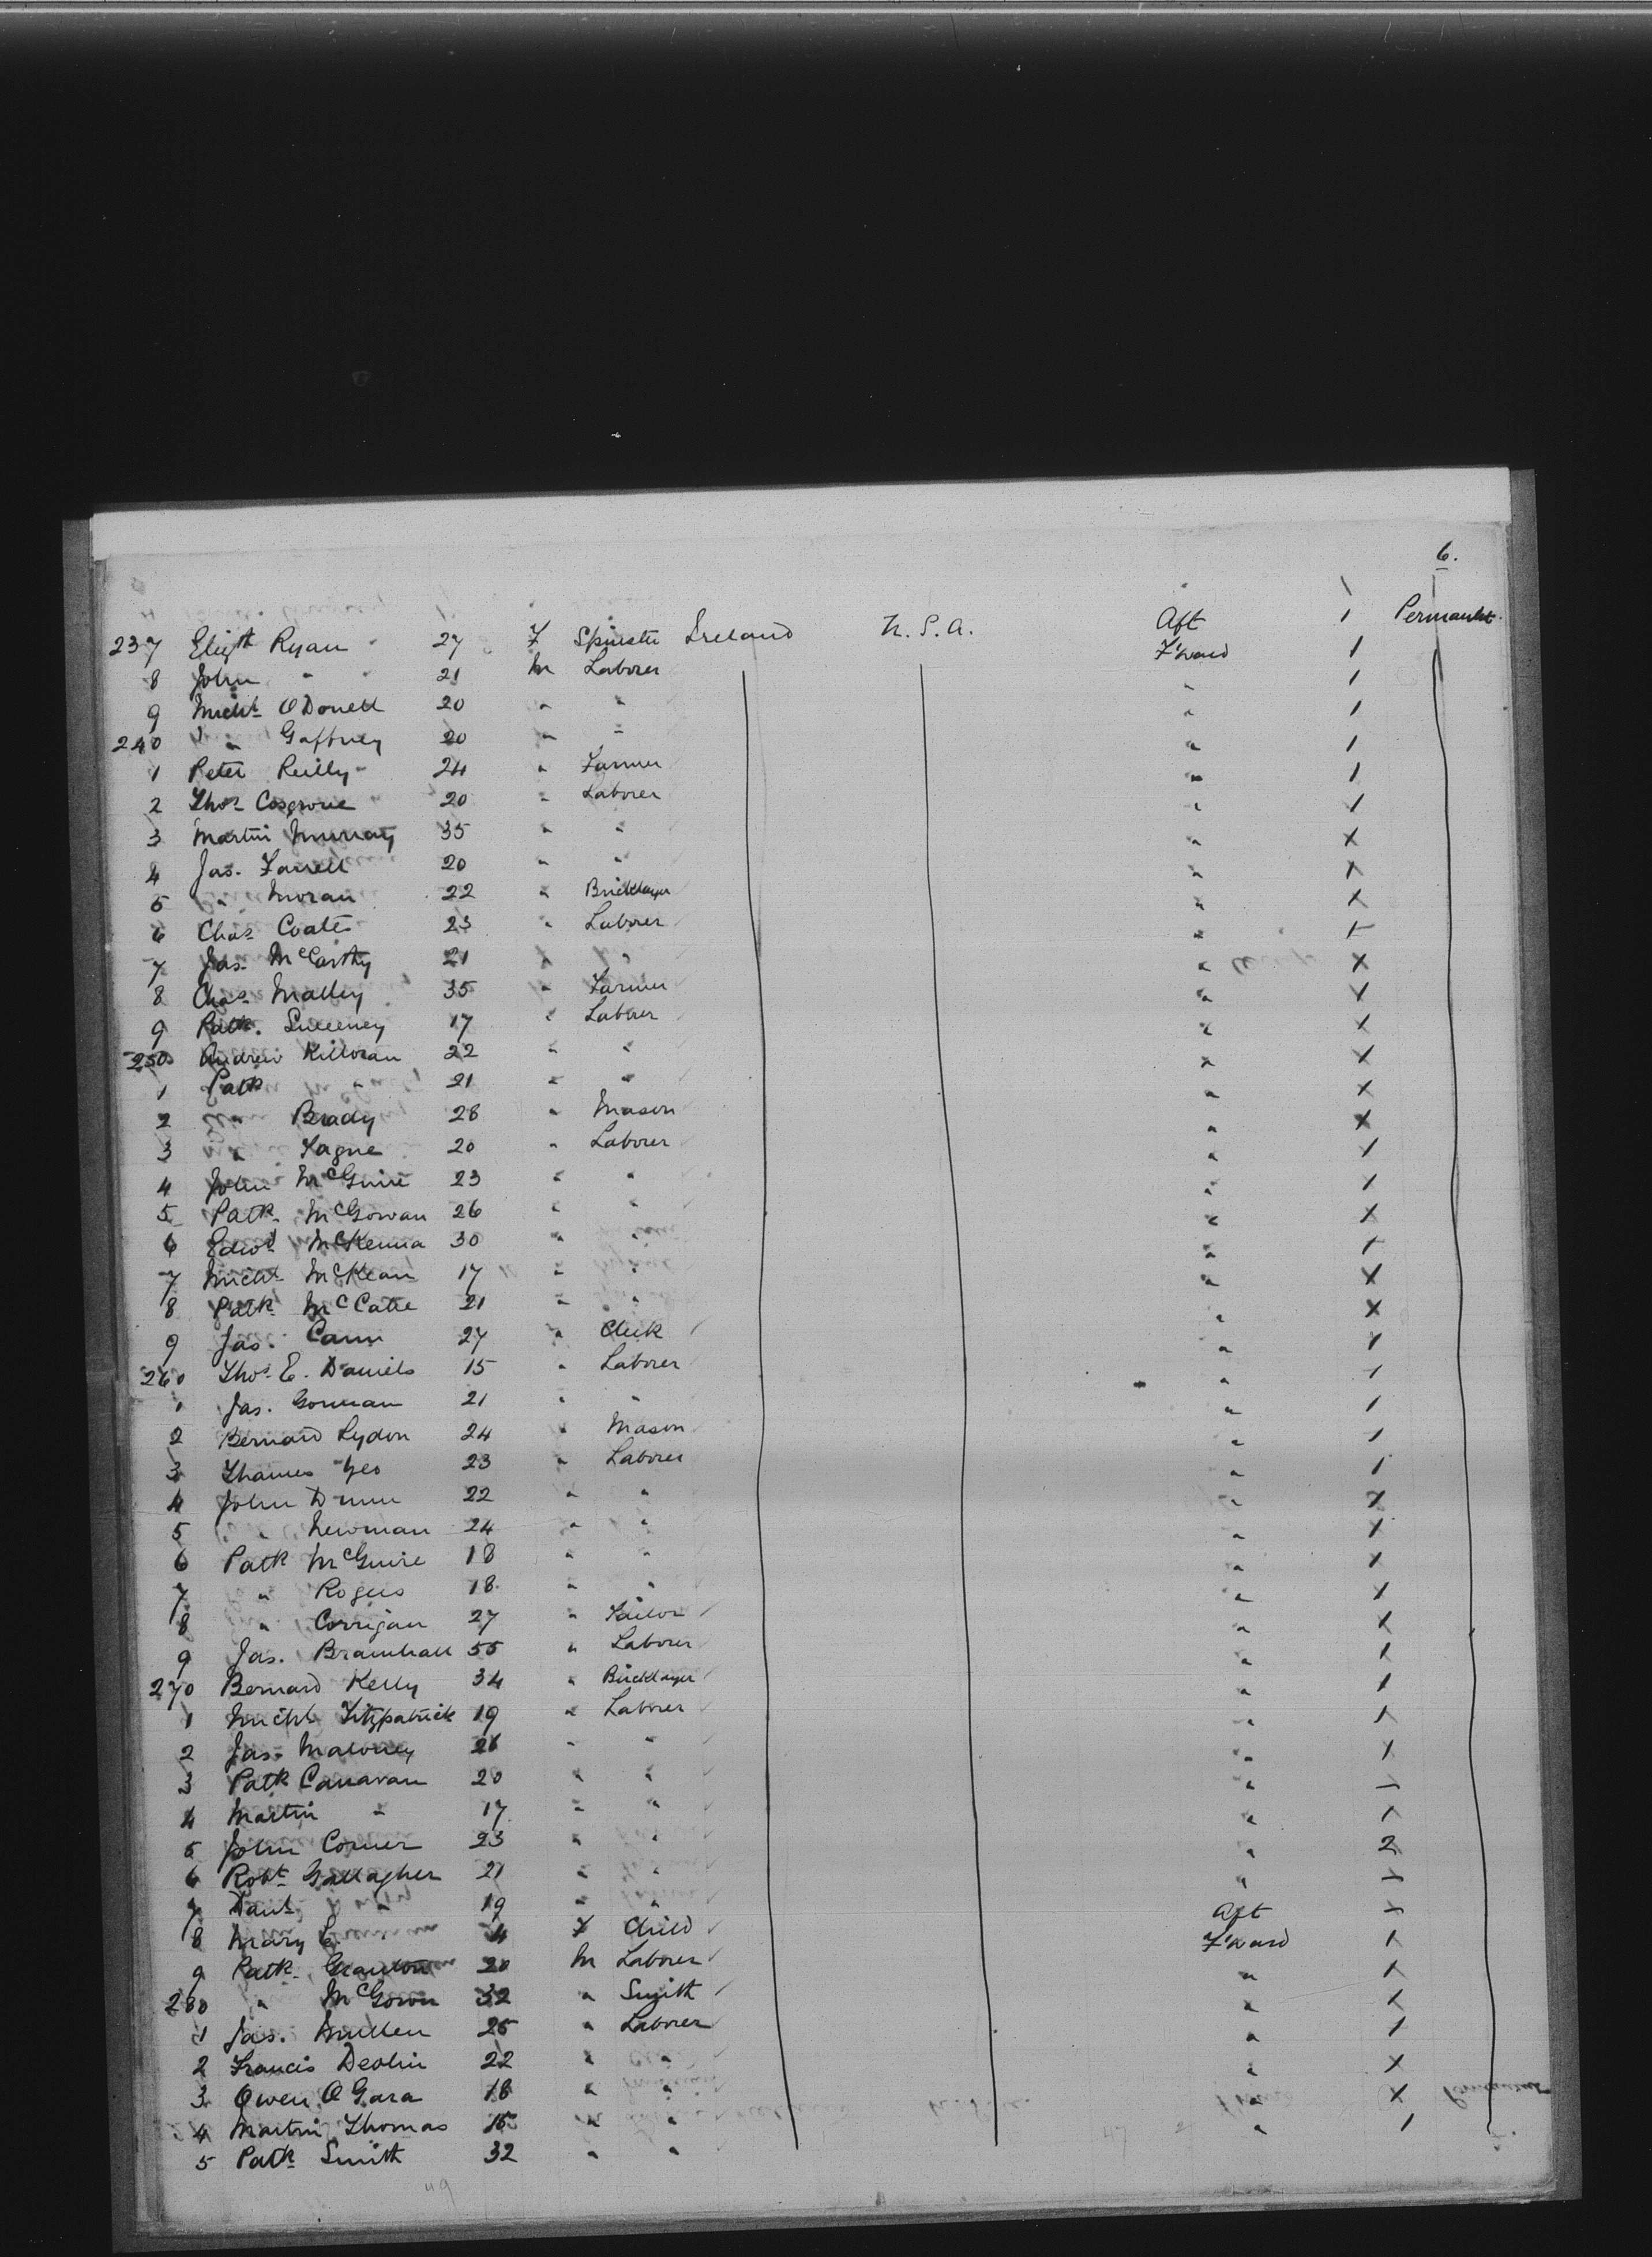 6.
237 Elizth Ryan 27 F Spinster Ireland U.S.A. Aft 1 Permanent
8 John " 21 M Laborer F'ward 1
9 Michl O Donell 20 " " " 1
240 " Gaffney 20 " " " 1
1 Peter Reilly 24 " Farmer " 1
2 Thos Cosgrove 20 " Laborer " 1
3 Martin Murray 35 " " " 1
4 Jas. Farrell 20 " " " X
5 " Moran 22 " Bricklayer " X
6 Chas Coates 23 " Laborer " X
7 Jas. McCarthy 21 " " " 1
8 Chas. Malley 35 " Farmer " X
9 Patk. Sweeney 17 " Laborer " X
250 Andrew Killoran 22 " " " X
1 Patk " 21 " " " X
2 " Brady 28 " Mason " X
3 " Fagne 20 " Laborer " X
4 John McGuire 23 " " " 1
5 Patk. McGowan 26 " " " 1
6 Edwd McKenna 30 " " " X
7 Michl McKean 17 " " " 1
8 Patk McCabe 21 " " " X
9 Jas. Cann 27 " Clerk " X
260 Thos. E. Daniels 15 " Laborer " 1
1 Jas. Gorman 21 " " " 1
2 Bernard Lydon 24 " Mason " 1
3 Thames Geo 23 " Laborer " 1
4 John Dunn 22 " " " 1
5 " Newman 24 " " " X
6 Patk McGuire 18 " " " 1
7 " Rogers 18 " " " X
8 " Corrigan 27 " Tailor " X
9 Jas. Bramhall 55 " Laborer " X
270 Bernard Kelly 34 " Bricklayer " 1
1 Michl Fitzpatrick 19 " Laborer " 1
2 Jas. Maloney 26 " " " 1
3 Patk Canavan 20 " " " 1
4 Martin " 17 " " "
5 John Comer 23 " " " 1
6 Robt Gallagher 21 " " " 2
7 Danl " 19 " " "
8 Mary E. " 4 F Child Aft
9 Patk. 20 M Laborer F'ward 1
280 " McGown 32 " Smith " 1
1 Jas. Mullen 25 " Laborer " 1
2 Francis Devlin 22 " " " 1
3 Owen O Gara 18 " " " X
4 Martin Thomas 15 " " " X
5 Patk Smith 32 " " " 1